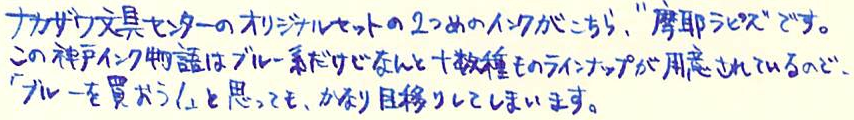 ナガサワ文具センターのオリジナルセットの2つめのインクがこちら、"摩耶ラピス"です。
この神戸インク物語はブルー系だけでなんと十数種ものラインナップが用意されているので、
「ブルーを買おう!」と思っても、かなり目移りしてしまいます。